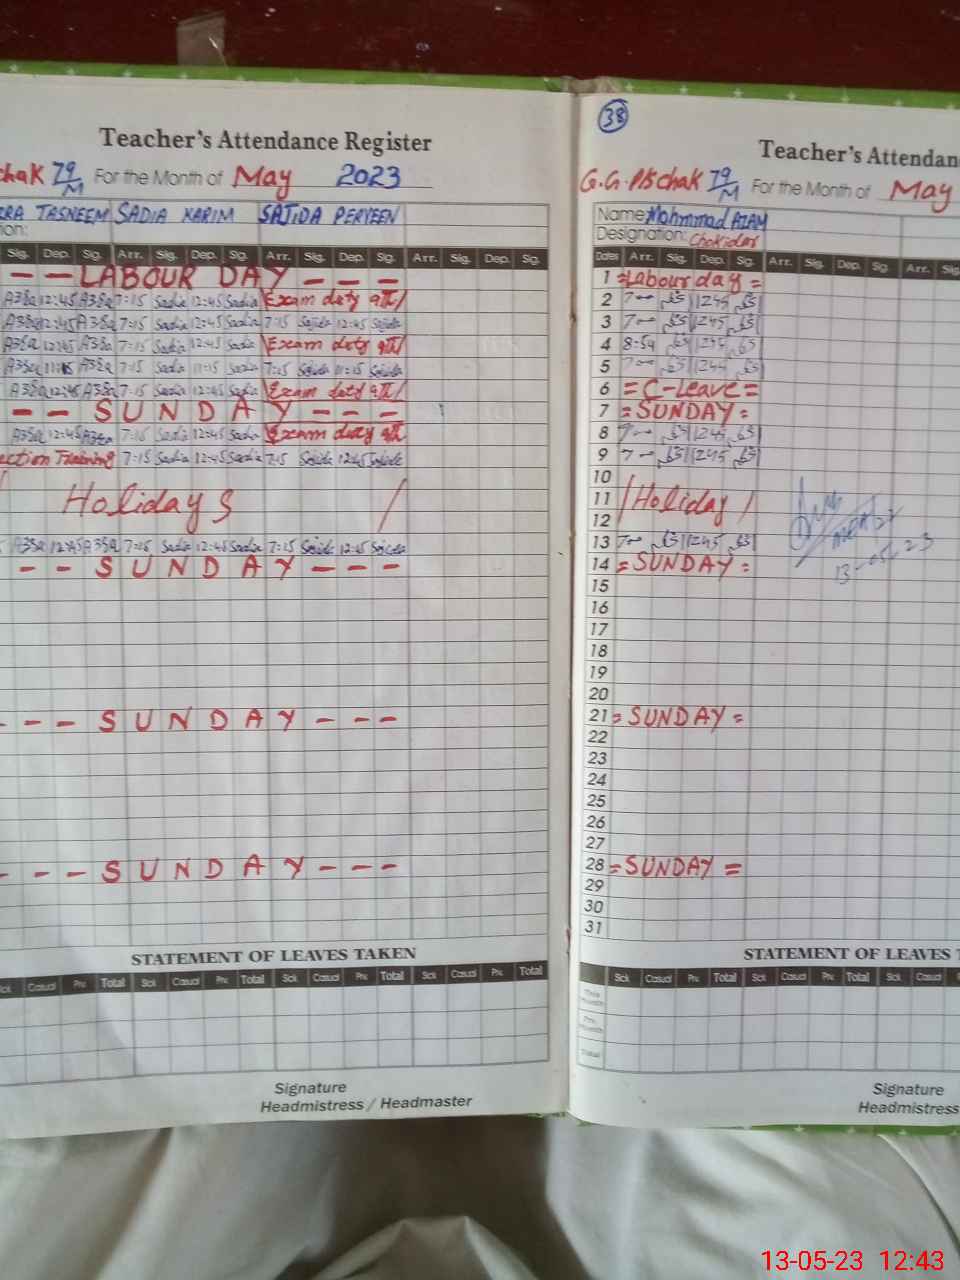 Teacher's Attendance Register
chak 79/M For the Month of May 2023
RA TASNEEM SADIA KARIM SAJIDA PERVEEN
ion:
Sig. Dep. Sig. Arr. Sig. Dep. Sig. Arr. Sig. Dep. Sig. Arr. Sig. Dep. Sig.
- - LABOUR DAY - - -
12:45 7:15 Sadia 12:45 Sadia Exam duty
12:45 7:15 Sadia 12:45 Sadia 7:15 Sajida 12:45 Sajida
12:45 7:15 Sadia 12:45 Sadia Exam duty
11:15 7:15 Sadia 11:15 Sadia 7:15 Sajida 11:15 Sajida
12:45 7:15 Sadia 12:45 Sadia Exam duty
- - SUNDAY - - -
12:45 7:15 Sadia 12:45 Sadia Exam duty
ection Training 7:15 Sadia 12:45 Sadia 7:15 Sajida 12:45 Sajida
Holidays /
12:45 7:15 Sadia 12:45 Sadia 7:15 Sajida 12:45 Sajida
- - SUNDAY - - -
- - - SUNDAY - - -
- - - SUNDAY - - -
STATEMENT OF LEAVES TAKEN
Sick Casual Prv. Total Sick Casual Prv. Total Sick Casual Prv. Total
Signature
Headmistress / Headmaster
38
Teacher's Attendan
G.G.P/S chak 79/M For the Month of May
Name: Mohmmad AZAM
Designation: Chokidar
Dates Arr. Sig. Dep. Sig. Arr. Sig. Dep. Sig. Arr. Sig.
1 = Labour day =
2 7-00 1245
3 7-00 1245
4 8-54 1245
5 7-00 1245
6 = C-Leave =
7 = SUNDAY =
8 7-00 1245
9 7-00 1245
10
11 / Holiday /
12
13 7-00 1245
13-05-23
14 = SUNDAY =
15
16
17
18
19
20
21 = SUNDAY =
22
23
24
25
26
27
28 = SUNDAY =
29
30
31
STATEMENT OF LEAVES T
Sick Casual Prv. Total Sick Casual Prv. Total Sick Casual
This Month
Prv. Month
Total
Signature
Headmistress
13-05-23 12:43